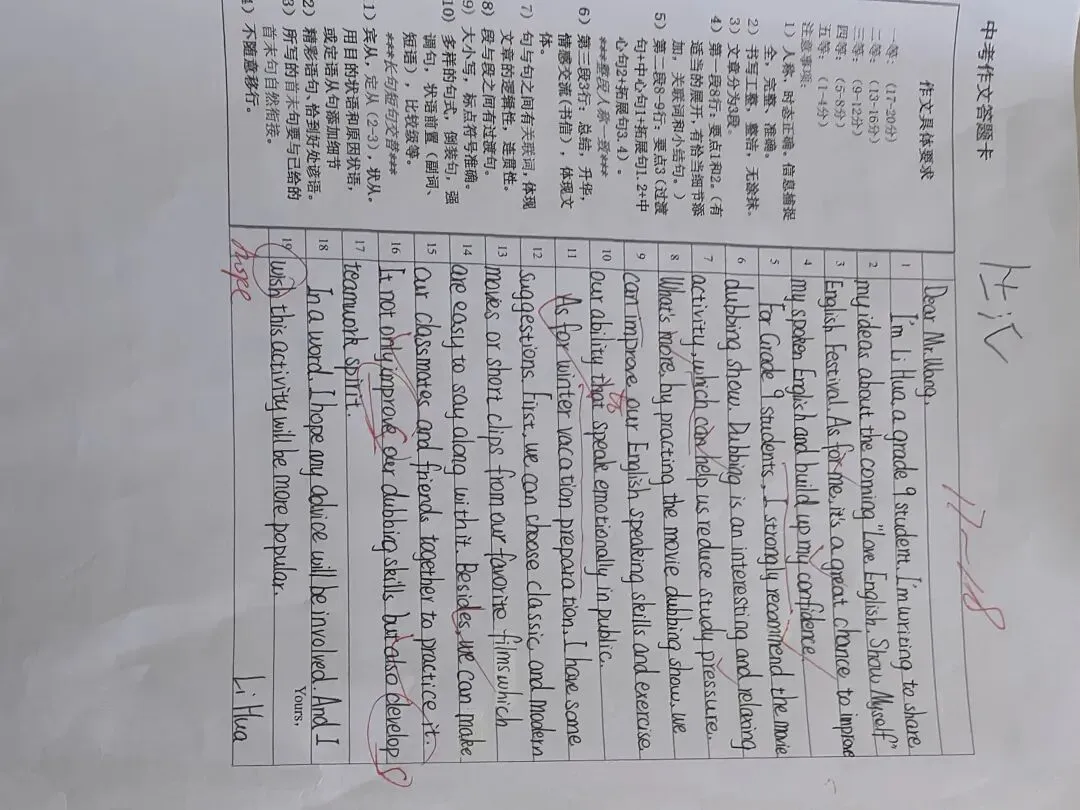 中考作文答题卡
作文具体要求
一等：(17-20分)
二等：(13-16分)
三等：(9-12分)
四等：(5-8分)
五等：(1-4分)
注意事项：
1）人称，时态正确。信息捕捉
全，完整，准确。
2）书写工整，整洁，无涂抹。
3）文章分为3段。
4）第一段8行：要点1和2。（有
适当的展开，有恰当细节添
加，关联词和小结句。）
5）第二段8-9行：要点3（过渡
句+中心句1+拓展句1.2+中
心句2+拓展句3.4）。
***整段人称一致***
6）第三段3行：总结，升华，
情感交流(书信)，体现文
体。
7）句与句之间有关联词，体现
文章的逻辑性，连贯性。
8）段与段之间有过渡句。
9）大小写，标点符号准确。
10）多样的句式，倒装句，强
调句，状语前置（副词、
短语），比较级等。
***长句短句交替***
1）宾从，定从（2-3），状从。
用目的状语和原因状语，
或定语从句添加细节
2）精彩语句、恰到好处谚语。
3）所写的首末句要与已给的
首末句自然衔接。
4）不随意移行。
17-18
Dear Mr. Wang,
1 I'm Li Hua, a grade 9 student. I'm writing to share
2 my ideas about the coming "Love English, Show Myself"
3 English Festival. As for me, it's a great chance to improve
4 my spoken English and build up my confidence.
5 For Grade 9 students, I strongly recommend the movie
6 dubbing show. Dubbing is an interesting and relaxing
7 activity, which can help us reduce study pressure.
8 What's more, by practing the movie dubbing show, we
9 can improve our English speaking skills and exercise
10 our ability that speak emotionally in public.
to
11 As for winter vacation preparation, I have some
12 suggestions. First, we can choose classic and modern
13 movies or short clips from our favorite films which
14 are easy to say along with it. Besides, we can make
15 our classmates and friends together to practice it.
16 It not only improve our dubbing skills, but also develop
s
17 teamwork spirit.
18 In a word, I hope my advice will be involved. And I
19 wish this activity will be more popular.
hope
Yours,
Li Hua